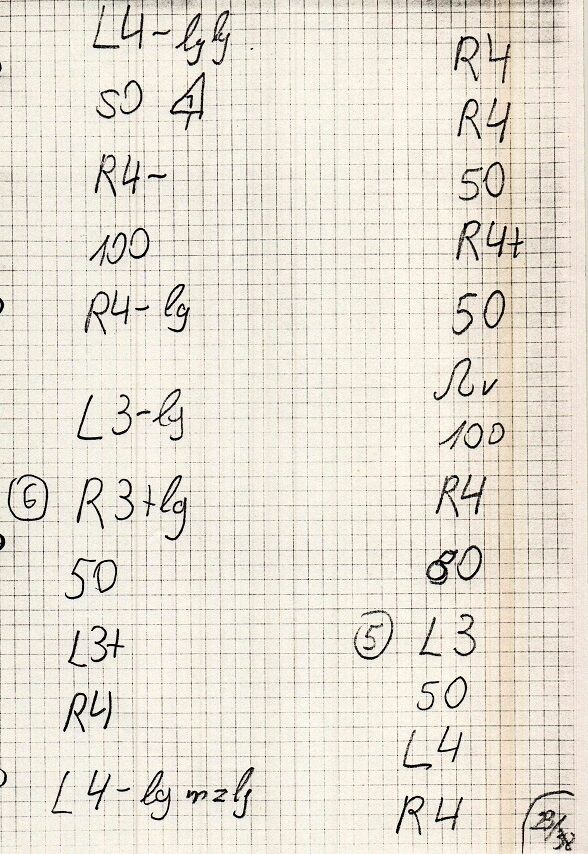 L4-lglg
50
R4-
100
R4-lg
L3-lg
6 R3+lg
50
L3+
R4
L4-lg mzlg
R4
R4
50
R4+
50
100
R4
80
5 L3
50
L4
R4
23/38